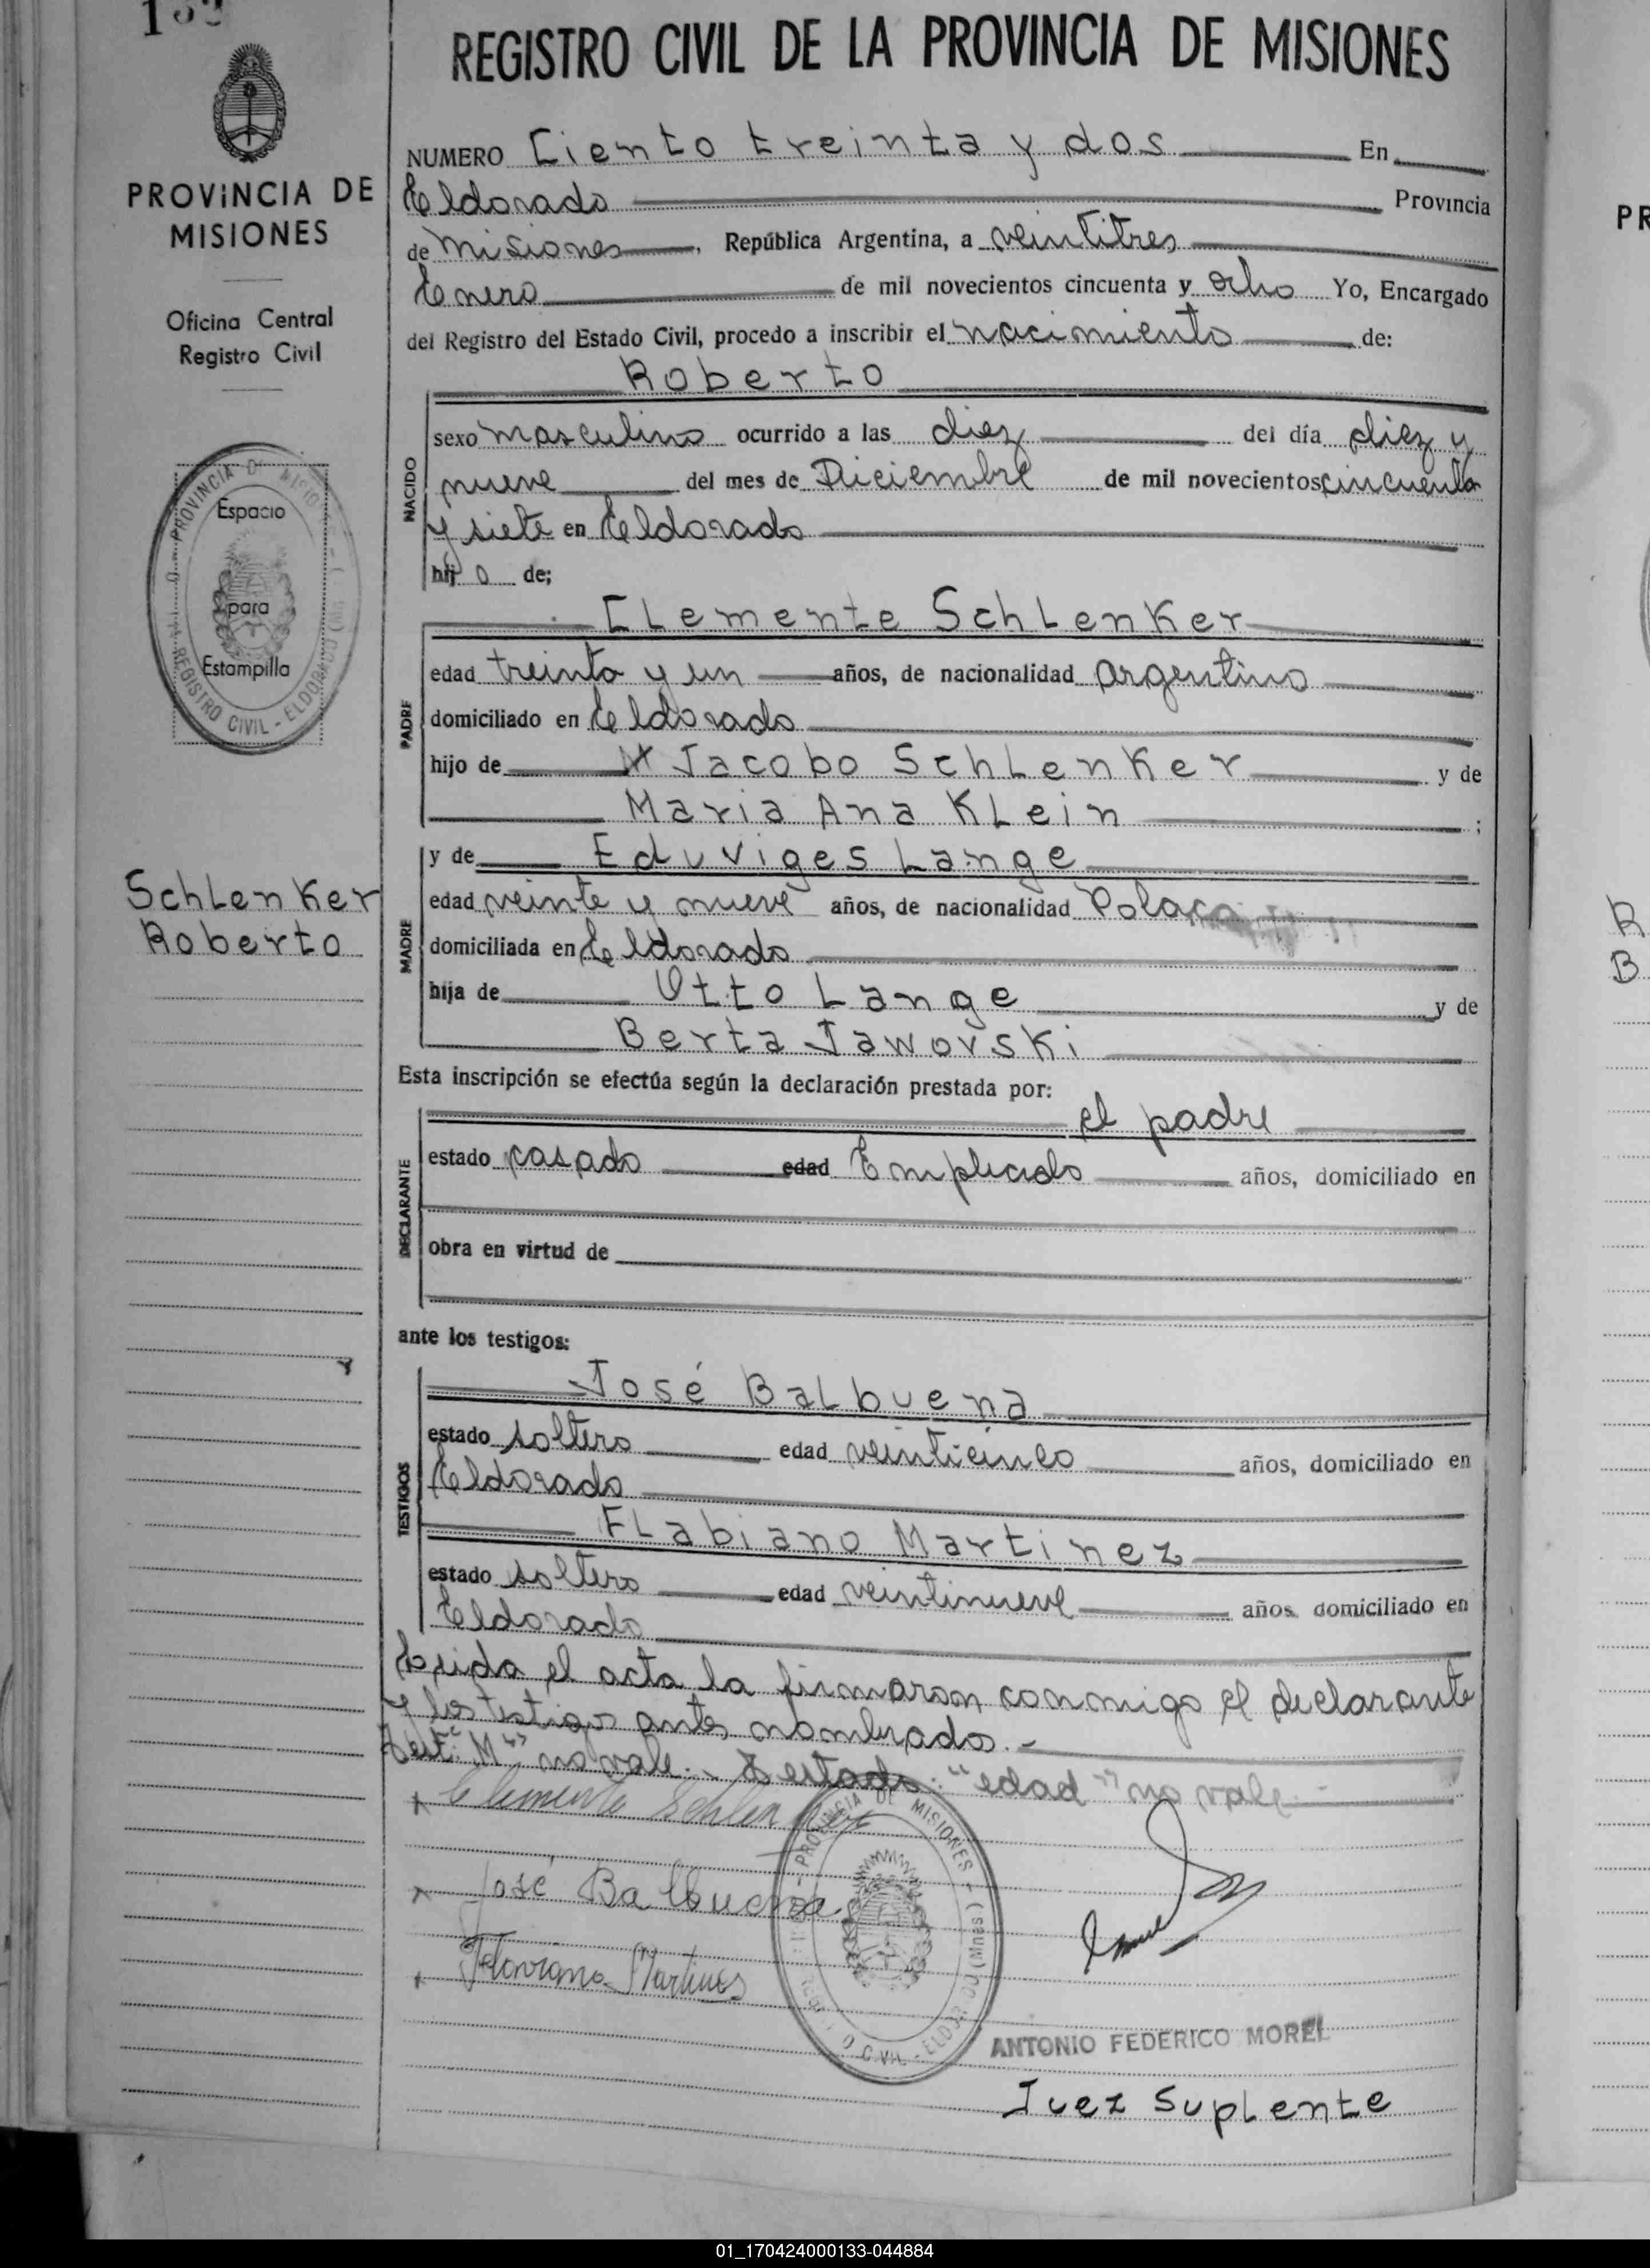 REGISTRO CIVIL DE LA PROVINCIA DE MISIONES
PROVINCIA DE
MISIONES
Oficina Central
Registro Civil
PROVINCIA DE MISIONES
Espacio
para
Estampilla
REGISTRO CIVIL - ELDORADO
Schlenker
Roberto
NUMERO Ciento treinta y dos En
Eldorado Provincia
de Misiones, República Argentina, a veintitres
Enero de mil novecientos cincuenta y ocho Yo, Encargado
del Registro del Estado Civil, procedo a inscribir el nacimiento de:
Roberto
NACIDO
sexo masculino ocurrido a las diez del día diez y
nueve del mes de Diciembre de mil novecientos cincuenta
y siete en Eldorado
hijo de;
Clemente Schlenker
PADRE
edad treinta y un años, de nacionalidad argentino
domiciliado en Eldorado
hijo de M Jacobo Schlenker y de
Maria Ana Klein ;
y de Eduviges Lange
MADRE
edad veinte y nueve años, de nacionalidad Polaca
domiciliada en Eldorado
hija de Otto Lange y de
Berta Jaworski
Esta inscripción se efectúa según la declaración prestada por:
el padre
DECLARANTE
estado casado edad Empleado años, domiciliado en
obra en virtud de
ante los testigos:
José Balbuena
TESTIGOS
estado soltero edad veinticinco años, domiciliado en
Eldorado
Flabiano Martinez
estado soltero edad veintinueve años domiciliado en
Eldorado
Leida el acta la firmaron conmigo el declarante
y los testigos antes nombrados.-
Test: "M" no vale.- Testado: "edad" no vale-
Clemente Schlenker
José Balbuena
Flaviano Martines
PROVINCIA DE MISIONES
CIVIL - ELDORADO (Mnes)
ANTONIO FEDERICO MOREL
Juez Suplente
PR
R
B
01_170424000133-044884